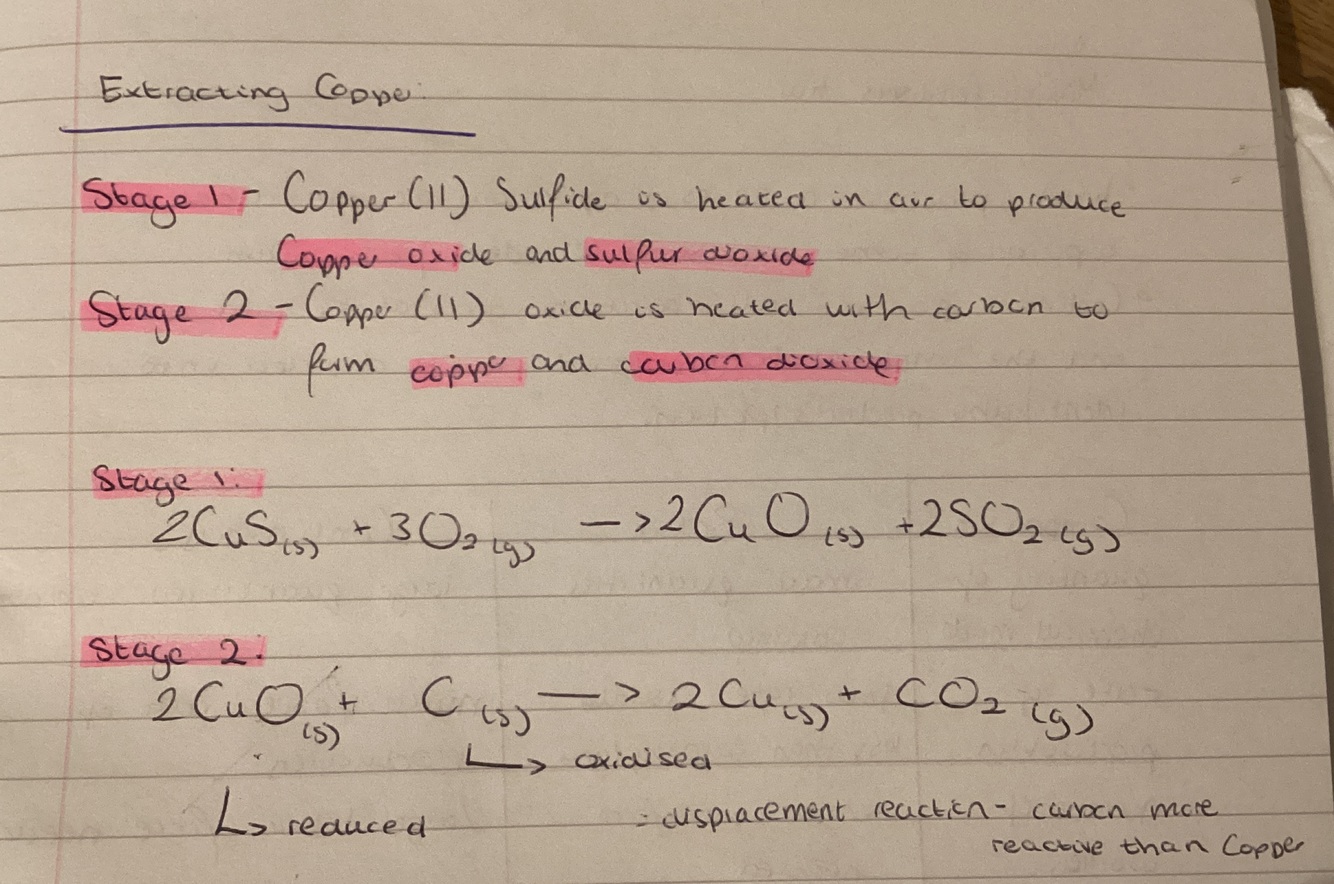 Extracting Copper:
Stage 1 - Copper (II) Sulfide is heated in air to produce
Copper oxide and sulfur dioxide
Stage 2 - Copper (II) oxide is heated with carbon to
form copper and carbon dioxide
Stage 1:
2CuS(s) + 3O₂(g) → 2CuO(s) + 2SO₂(g)
Stage 2:
2CuO(s) + C(s) → 2Cu(s) + CO₂(g)
↳ oxidised
↳ reduced
= displacement reaction - carbon more
reactive than Copper